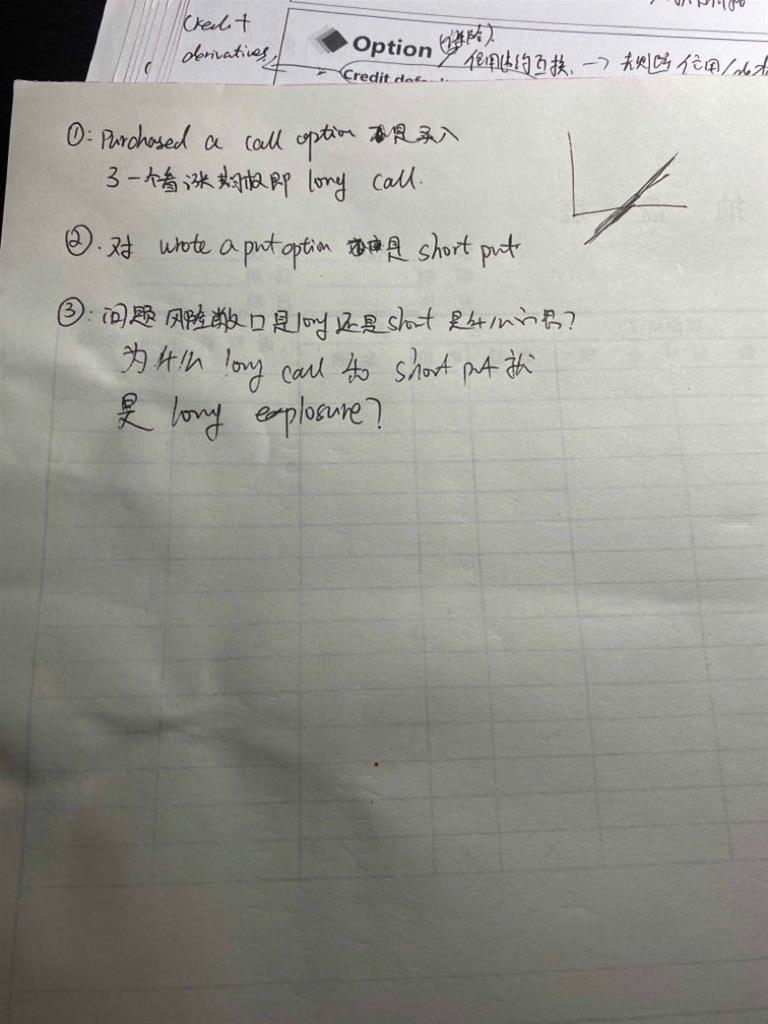 Credit
derivatives
Option
Credit defa
信用违约互换. →
①: Purchased a call option 是买入
了一个看涨期权即 long call.
②. 对 wrote a put option 是 short put
③: 问题 风险敞口是long 还是short 是什么意思?
为什么 long call 和 short put 就
是 long explosure?